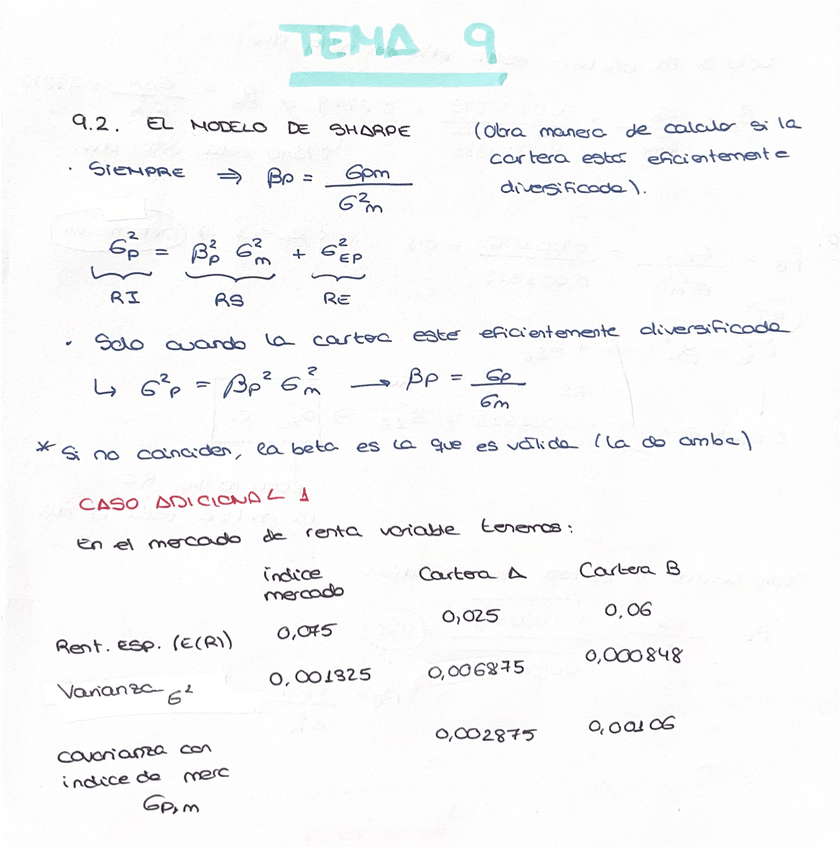 TEMA 9
9.2. EL MODELO DE SHARPE (Obra manera de calcular si la
cartera está eficientemente
diversificada).
· SIEMPRE ⇒ βp = σpm / σ²m
σ²p = β²p σ²m + σ²EP
RI RS RE
· Solo cuando la cartera esté eficientemente diversificada
↳ σ²p = βp² σ²m → βp = σp / σm
* Si no coinciden, la beta es la que es válida (la de arriba)
CASO ADICIONAL 1
En el mercado de renta variable tenemos:
índice mercado Cartera A Cartera B
Rent. ESP. (E(R)) 0,075 0,025 0,06
Varianza σ² 0,001325 0,006875 0,000848
covarianza con
índice de merc 0,002875 0,00106
σp,m